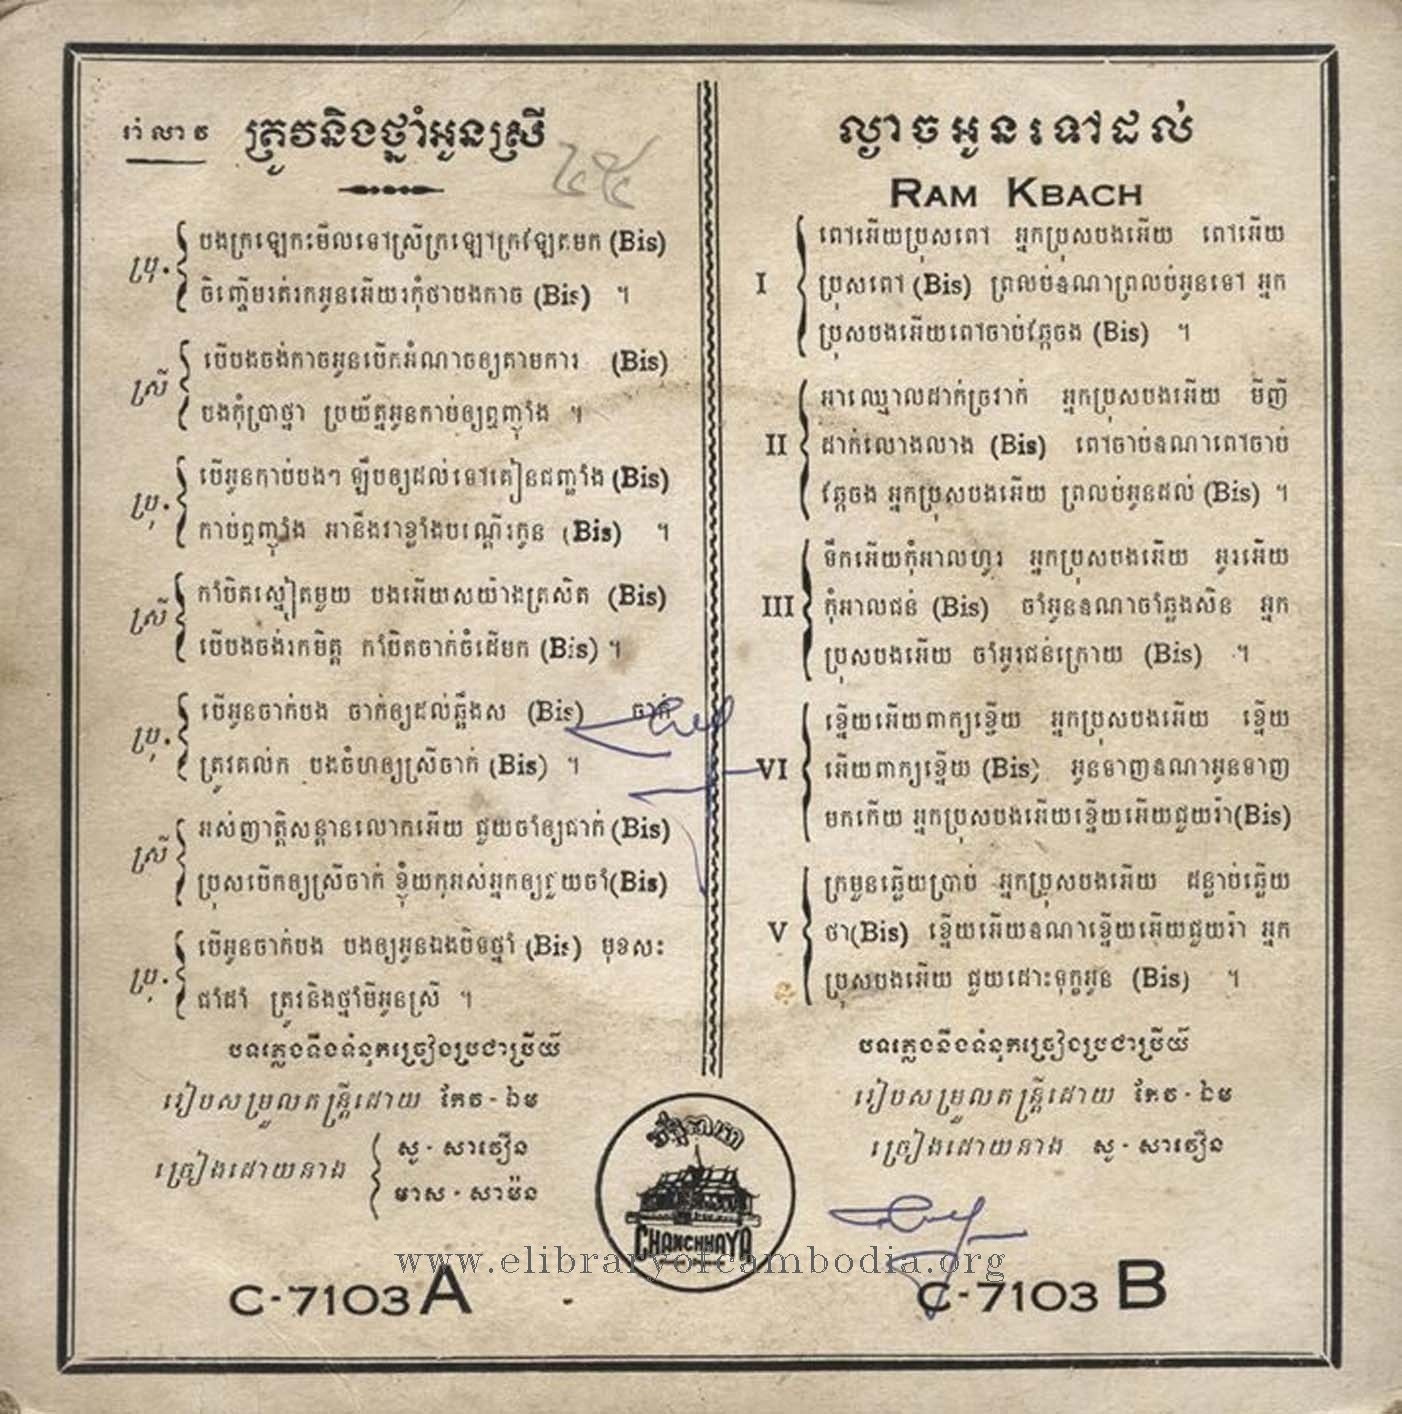 រាំលាវ
ត្រូវនិងថ្នាំអូនស្រី
ប្រុ. បងក្រឡេកមើលទៅស្រីក្រឡៅក្រឡែតមក (Bis)
ចិញ្ចើមរត់រកអូនអើយរកុំថាបងកាច (Bis) ។
ស្រី បើបងចង់កាចអូនបើកអំណាចឲ្យតាមការ (Bis)
បងកុំប្រាថ្នា ប្រយ័ត្នអូនកាប់ឲ្យឮញ៉ាំង ។
ប្រុ. បើអូនកាប់បងៗ ឡឹបឲ្យដល់ទៅគៀនជញ្ជាំង (Bis)
កាប់ឮញ៉ាំង អានឹងវាខ្លាំងបណ្ដើរកូន (Bis) ។
ស្រី កាំបិតស្នៀតមួយ បងអើយសយ៉ាងត្រសិត (Bis)
បើបងចង់រកមិត្ត កាំបិតចាក់ចំដើមក (Bis) ។
ប្រុ. បើអូនចាក់បង ចាក់ឲ្យដល់ឆ្អឹងស (Bis) ចាក់
ត្រូវគល់ក បងចំហឲ្យស្រីចាក់ (Bis) ។
ស្រី អស់ញាត្តិសន្តានលោកអើយ ជួយចាំឲ្យជាក់ (Bis)
ប្រុសបើកឲ្យស្រីចាក់ ខ្ញុំយកអស់អ្នកឲ្យជួយចាំ(Bis)
ប្រុ. បើអូនចាក់បង បងឲ្យអូនឯងបិទថ្នាំ (Bis) មុខសះ
ជាំដាំ ត្រូវនិងថ្នាំមីអូនស្រី ។
បទភ្លេងនឹងទំនុកច្រៀងប្រជាប្រីយ៍
រៀបសម្រួលតន្ត្រីដោយ កែវ - ឯម
ច្រៀងដោយនាង សូ - សាវឿន
មាស - សាម៉ន
C-7103 A
ល្ងាចអូនទៅដល់
RAM KBACH
I ពៅអើយប្រុសពៅ អ្នកប្រុសបងអើយ ពៅអើយ
ប្រុសពៅ (Bis) ព្រលប់ឧណាព្រលប់អូនទៅ អ្នក
ប្រុសបងអើយពៅចាប់ឆ្កែចង (Bis) ។
II អាឈ្មោលដាក់ច្រវាក់ អ្នកប្រុសបងអើយ មីញី
ដាក់លោងលាង (Bis) ពៅចាប់ឧណាពៅចាប់
ឆ្កែចង អ្នកប្រុសបងអើយ ព្រលប់អូនដល់ (Bis) ។
III ទឹកអើយកុំអាលហូរ អ្នកប្រុសបងអើយ អូរអើយ
កុំអាលជន់ (Bis) ចាំអូនឧណាចាំឆ្លងសិន អ្នក
ប្រុសបងអើយ ចាំអូរជន់ក្រោយ (Bis) ។
VI ខ្នើយអើយពាក្យខ្នើយ អ្នកប្រុសបងអើយ ខ្នើយ
អើយពាក្យខ្នើយ (Bis) អូនទាញឧណាអូនទាញ
មកកើយ អ្នកប្រុសបងអើយខ្នើយអើយជួយរ៉ា(Bis)
V ក្រមួនឆ្លើយប្រាប់ អ្នកប្រុសបងអើយ ដន្លាប់ឆ្លើយ
ថា(Bis) ខ្នើយអើយឧណាខ្នើយអើយជួយរ៉ា អ្នក
ប្រុសបងអើយ ជួយដោះទុក្ខអូន (Bis) ។
បទភ្លេងនឹងទំនុកច្រៀងប្រជាប្រីយ៍
រៀបសម្រួលតន្ត្រីដោយ កែវ - ឯម
ច្រៀងដោយនាង សូ - សាវឿន
C-7103 B
ច័ន្ទឆាយា
CHANCHHAYA
www.elibraryofcambodia.org